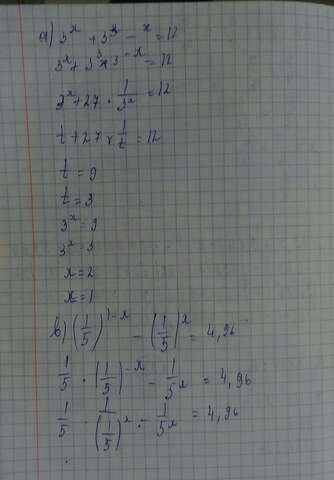 а) 3^x + 3^3 - x = 12
3^x + 3^3 × 3^-x = 12
3^x + 27 · 1/3^x = 12
t + 27 × 1/t = 12
t = 9
t = 3
3^x = 9
3^x = 3
x = 2
x = 1
в) (1/5)^1-x - (1/5)^x = 4,96
1/5 · (1/5)^-x - 1/5^x = 4,96
1/5 · 1/(1/5)^x - 1/5^x = 4,96